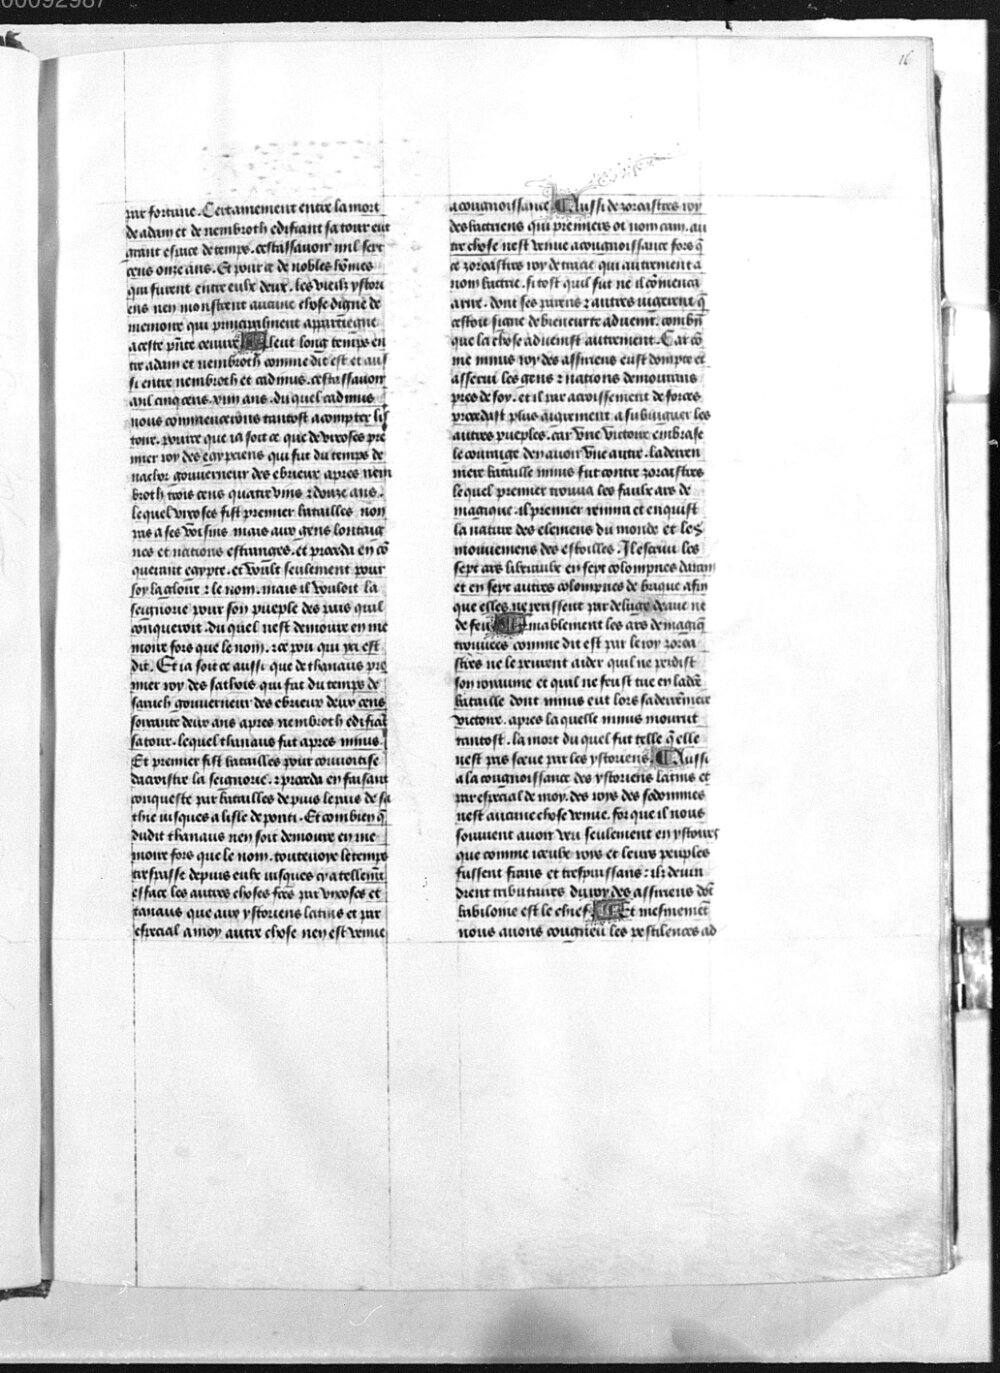 00092987
16
par fortune. Certainement entre la mort
de adam et de nembroth edifiant sa tour eut
grant espace de temps. cestassauoir mil sept
cens onze ans. Et pour ce de nobles hõmes
qui furent entre eulx deux. les vieilz ystori
ens nen monstrent aucune chose digne de
memoire qui principalment appartiegne
a ceste pñte oeuure leut long temps en
tre adam et nembroth comme dit est et aus
si entre nembroth et cadmus. cestassauoir
mil cinq cens. viii ans. du quel cadmus
nous commencerõns tantost a compter lis
toire. pource que ia soit ce que de vixoses pre
mier roy des egypciens qui fut du temps de
nachor gouuerneur des ebrieux apres nem
broth trois cens quatre vins ⁊ douze ans.
lequel vixoses fist premier batailles non
pas a ses voisins mais aux gens lontaig
nes et nations estranges. et proceda en cõ
querant egypte. et voult seulement pour
soy la gloire ⁊ le nom. mais il vouloit la
seignorie pour son pueple des pais quil
conqueroit. du quel nest demoure en me
moire fors que le nom. ⁊ ce pou qui ya est
dit. Et ia soit ce aussi que de thanaus pre
mier roy des sathois qui fut du temps de
saruch gouuerneur des ebrieux deux cens
soixante deux ans apres nembroth edifiãt
sa tour. lequel thanaus fut apres ninus.
Et premier fist batailles pour conuoitise
dacroistre la seignorie. ⁊ proceda en faisant
conqueste par batailles depuis le pais de si
thie iusques a lisle de ponti. Et combien q̃
dudit thanaus nen soit demoure en me
moire fors que le nom. touteuoye le temps
trespasse depuis eulx iusques cy a tellemẽt
efface les autres choses fces par vixoses et
tanaus que aux ystoriens latins et par
especial a moy autre chose nen est venue
a congnoissance Aussi de zoroastres roy
des bactriens qui premiers ot nom cam. au
tre chose nest venue a congnoissance fors q̃
ce zoroastres roy de tracie qui autrement a
nom bactrie. si tost quil fut ne il cõmenca
a rire. dont ses parens ⁊ autres iugerent q̃
cestoit signe de bieneurte aduenir. combñ
que la chose aduenist autrement. Car cõ
me ninus roy des assiriens eust dompte et
asserui les gens ⁊ nations demourans
pres de soy. et il par accroissement de forces
procedast plus aigrement a subiuguer les
autres pueples. car vne victoire embrase
le courage den auoir vne autre. la derren
niere bataille ninus fut contre zoroastres
lequel premier trouua les faulx ars de
magique. il premier et enquist
la nature des elemens du monde et les
mouuemens des estoilles. Il escriui les
sept ars liberaulx en sept colompnes darain
et en sept autres colompnes de brique afin
que elles ne perissent par deluge deaue ne
de feu mablement les ars de magiq̃
trouuees comme dit est par le roy zoroa
stres ne le peurent aider quil ne perdist
son royaume et quil ne feust tue en ladce
bataille dont ninus eut lors sa derrẽniere
victoire. apres la quelle ninus mourut
tantost. la mort du quel fut telle q̃ elle
nest pas sceue par les ystoriens. Aussi
a la congnoissance des ystoriens latins et
par especial de moy. des roys des sodommes
nest aucune chose venue. for que il nous
souuient auoir veu seulement en ystoires
que comme iceulx roys et leurs peuples
fussent frans et trespuissans: ilz deuin
drent tributaires du roy des assiriens dõt
babiloine est le chief. Et mesmemẽt
nous auons congneu les pestilences ad